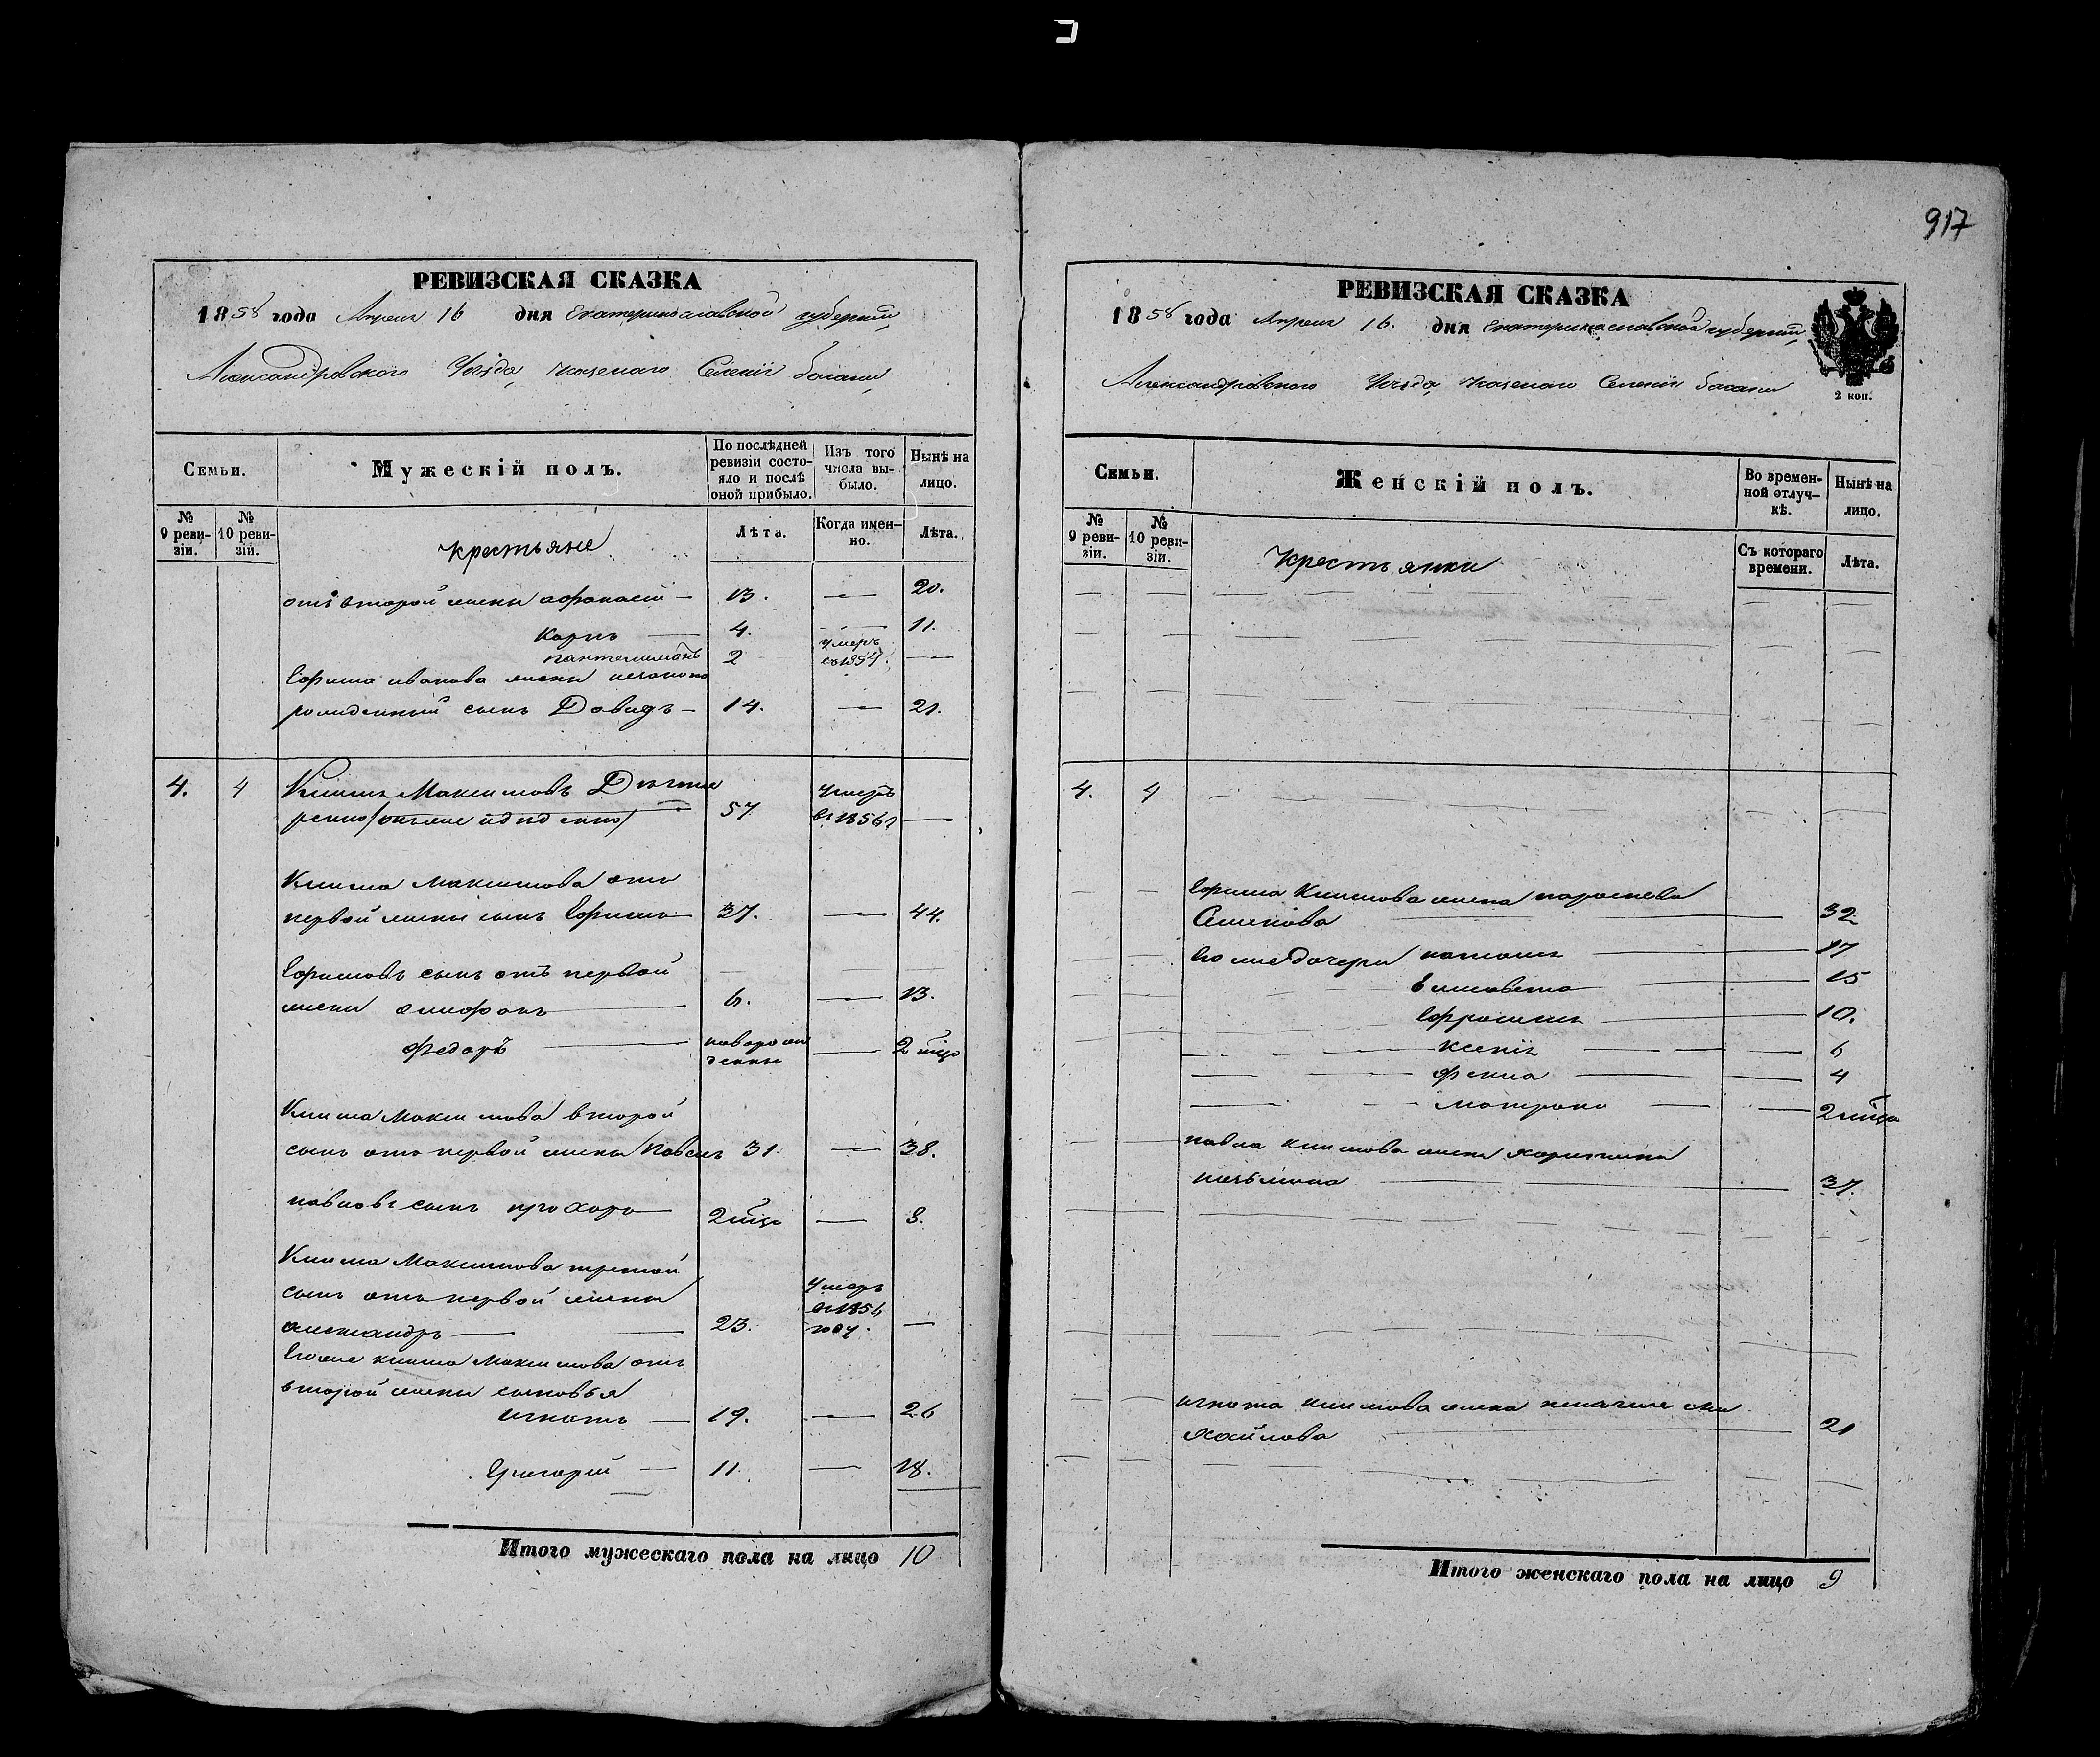 917
РЕВИЗСКАЯ СКАЗКА
1858 года Апреля 16 дня Екатеринославской губернии,
Александровского Уезда, казенаго Селения басани
Семьи.
Мужескій полъ.
По послѣдней ревизіи состояло и послѣ оной прибыло.
Изъ того числа выбыло.
Нынѣ на лицо.
№ 9 ревизіи.
№ 10 ревизіи.
крестьяне
Лѣта.
Когда именно.
Лѣта.
отъ второй жены афанасій — 13. — 20.
Карпъ — 4. — 11.
пантелимонъ 2 умеръ въ 1854. —
Ефима иванова жены незаконо
рожденный сынъ Давидъ — 14. — 21.
4. 4 Климъ Максимовъ
57 умеръ въ 1856г —
Клима Максимова отъ
первой жены сынъ Ефимъ — 37. — 44.
Ефимовъ сынъ отъ первой
жены — 6. — 13.
Федоръ — новорожденны — 2 мца
Клима Максимова второй
сынъ отъ первой жены Павелъ 31. — 38.
павловъ сынъ прохоръ — 2 мца — 8.
Клима Максимова третій
сынъ отъ первой жены
александръ — 23. умеръ въ 1856 году. —
Егоже клима Максимова отъ
второй жены сыновья
игнатъ — 19. — 26
Григорій — 11. — 18.
Итого мужескаго пола на лицо 10
РЕВИЗСКАЯ СКАЗКА
1858 года Апреля 16. дня Екатеринославской губернии,
Александровского Уезда, казенаго Селения басани
2 коп.
Семьи.
Женскій полъ.
Во временной отлучкѣ.
Нынѣ на лицо.
№ 9 ревизіи.
№ 10 ревизіи.
Крестьянки
Съ котораго времени.
Лѣта.
4. 4
Ефима Климова жена парасковя
Семенова — 32
Его же дочери наталия — 17
Елисавета — 15
Ефросиния — 10.
Ксения — 6
Фекла — 4
Матрона — 2 мца
павла климова жена харитина
— 37.
игната климова жена пелагея ми
хайлова — 21
Итого женскаго пола на лицо 9